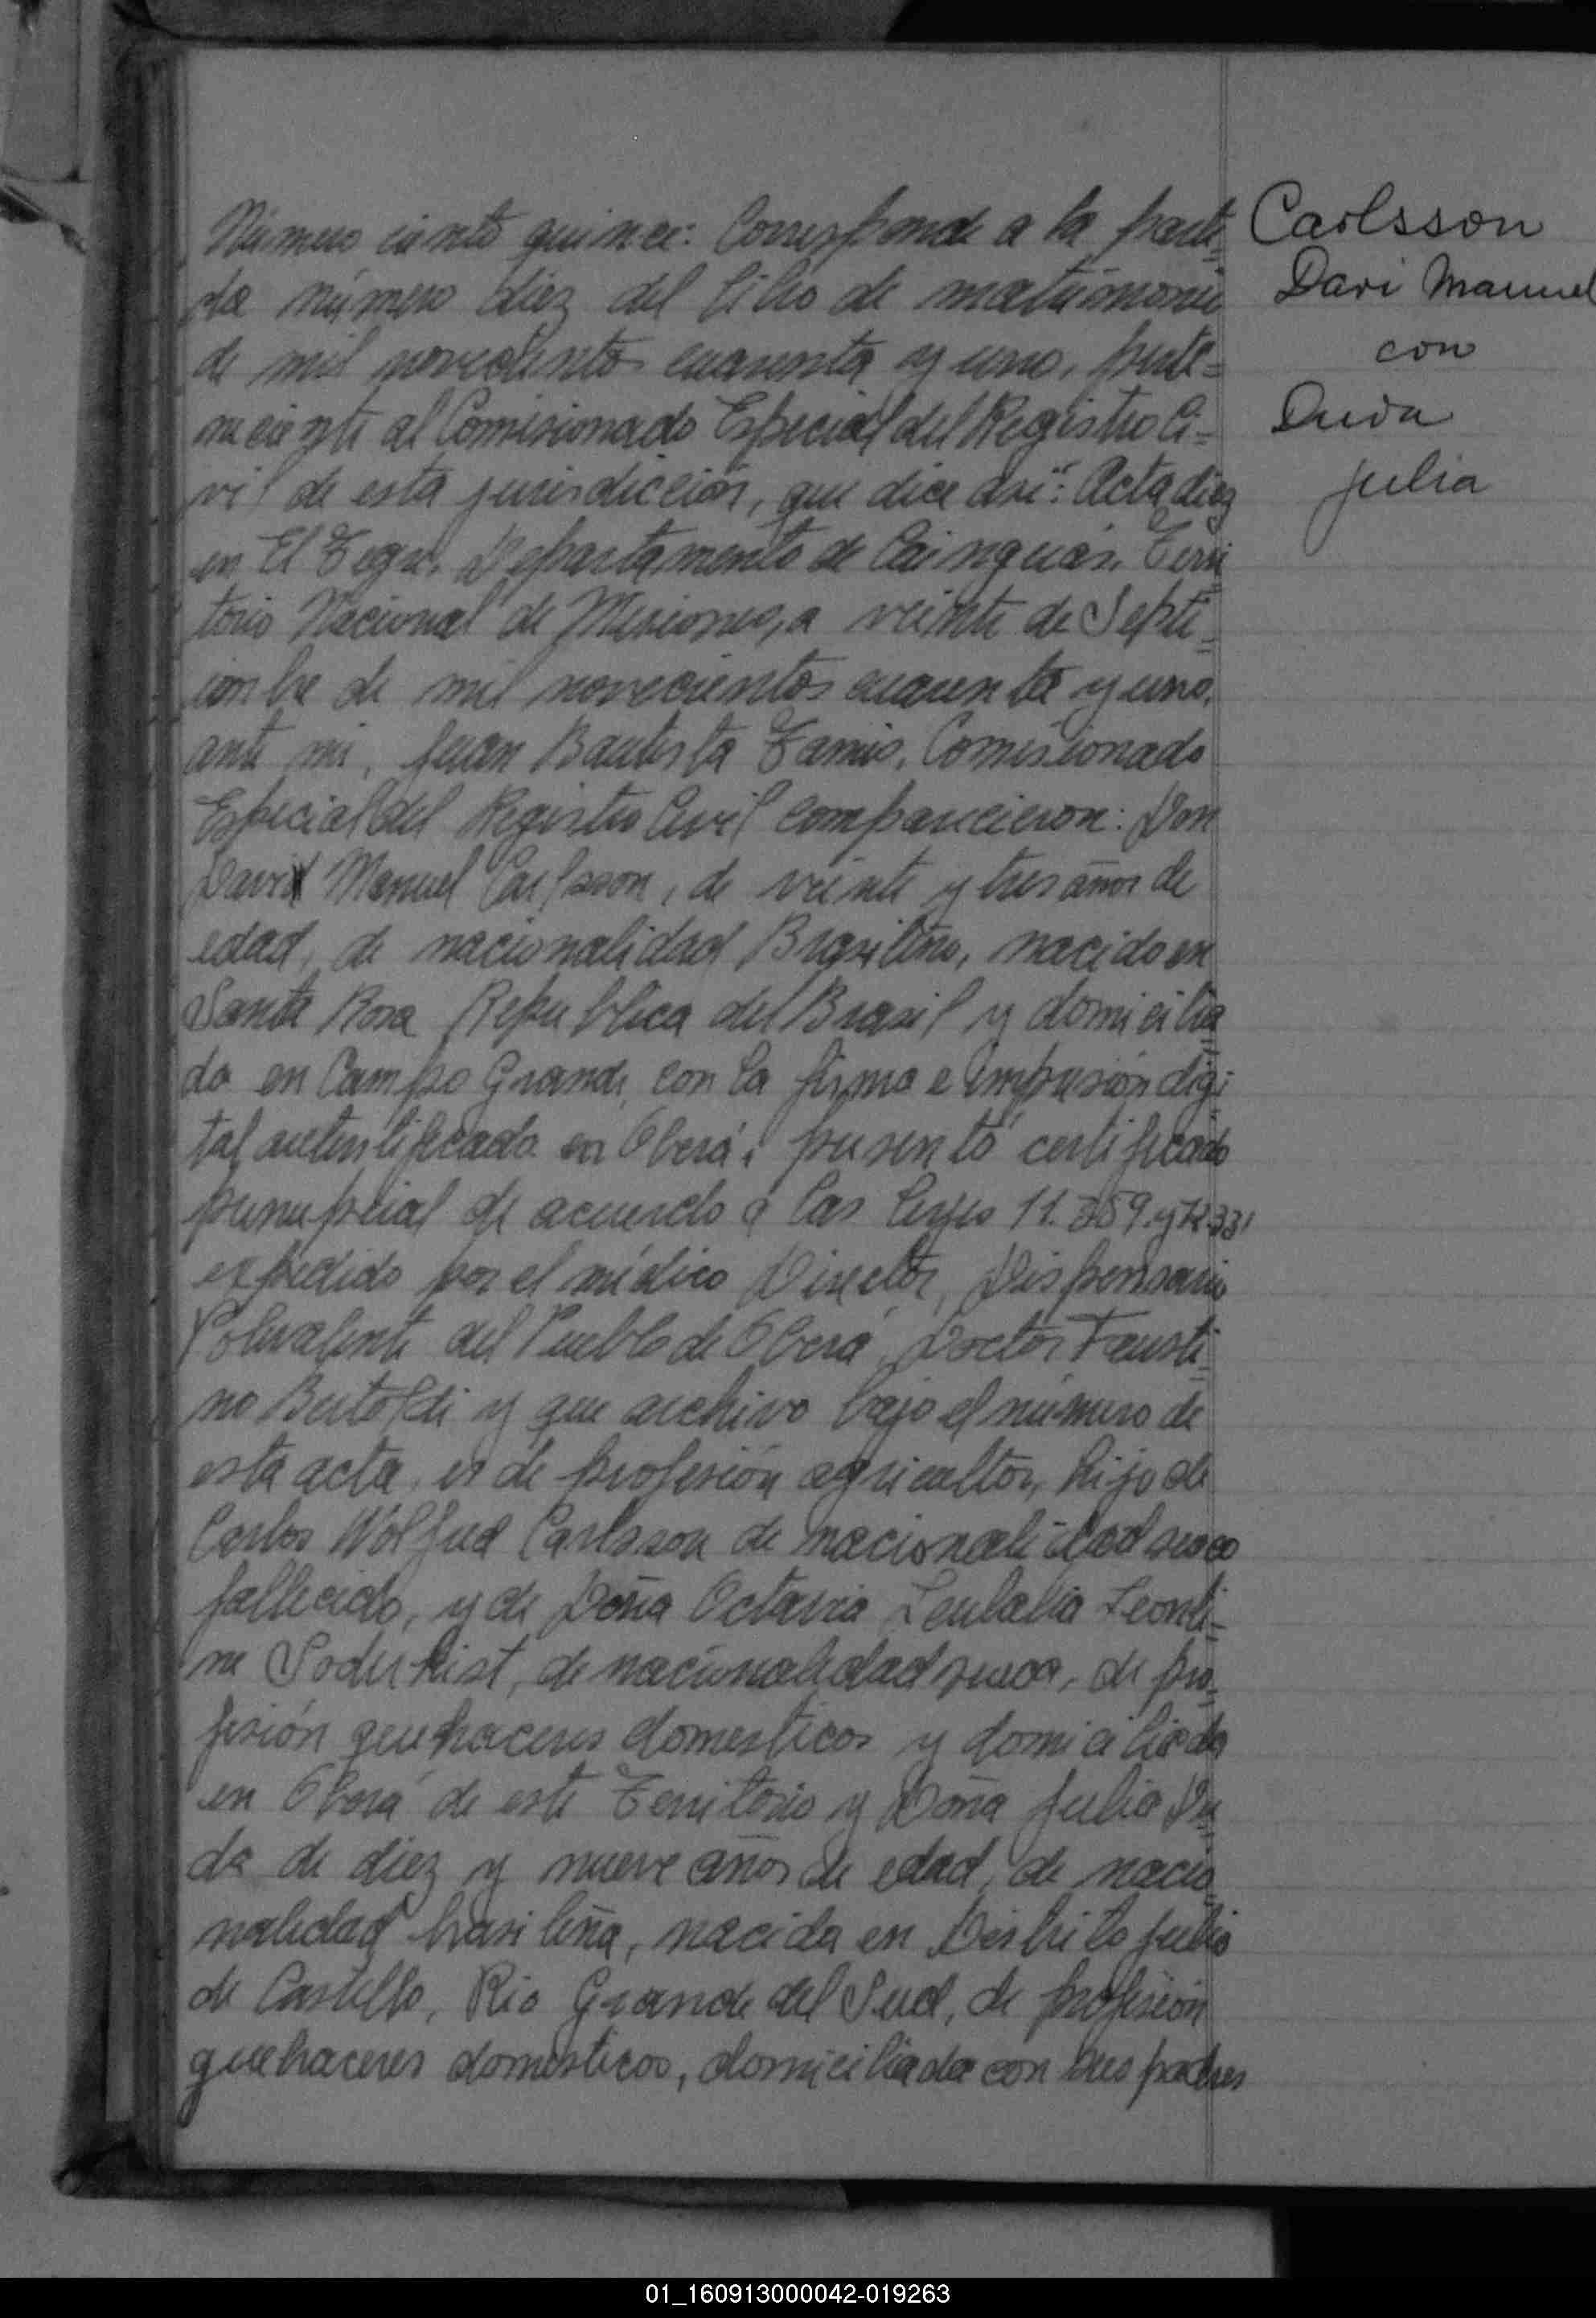 Número ciento quince: Corresponde a la parti=
da número diez del libro de matrimonio
de mil novecientos cuarenta y uno, perte=
neciente al Comisionado Especial del Registro Ci=
vil de esta jurisdicción, que dice así: "Acta diez
en El Tigre, Departamento de Cainguás. Terri
torio Nacional de Misiones, a veinte de Septi=
embre de mil novecientos cuarenta y uno,
ante mi, Juan Bautista Comisionado
Especial del Registro Civil comparecieron: Don
David Manuel Carlsson, de veinte y tres años de
edad, de nacionalidad Brasileño, nacido en
Santa Rosa República del Brasil y domicilia=
do en Campo Grande, con la firma e impresión digi=
tal autentificada en Oberá; presentó certificado
prenupcial de acuerdo a las leyes 11.359. y 12.331
expedido por el médico Director, Dispensario
Polivalente del Pueblo de Oberá, Doctor Fausti=
no Bertoldi y que archivo bajo el número de
esta acta, es de profesión agricultor, hijo de
Carlos Wolfred Carlsson de nacionalidad sueco
fallecido, y de Doña Octavia Leonti=
na Soderkist, de nacionalidad sueca, de pro=
fesión quehaceres domesticos y domiciliada
en Oberá de este Territorio y Doña Julia Du=
da de diez y nueve años de edad, de nacio=
nalidad brasileña, nacida en Distrito Julio
de Castillo, Rio Grande del Sud, de profesión
quehaceres domesticos, domiciliada con sus padres
Carlsson
Davi Manuel
con
Duda
Julia
01_160913000042-019263